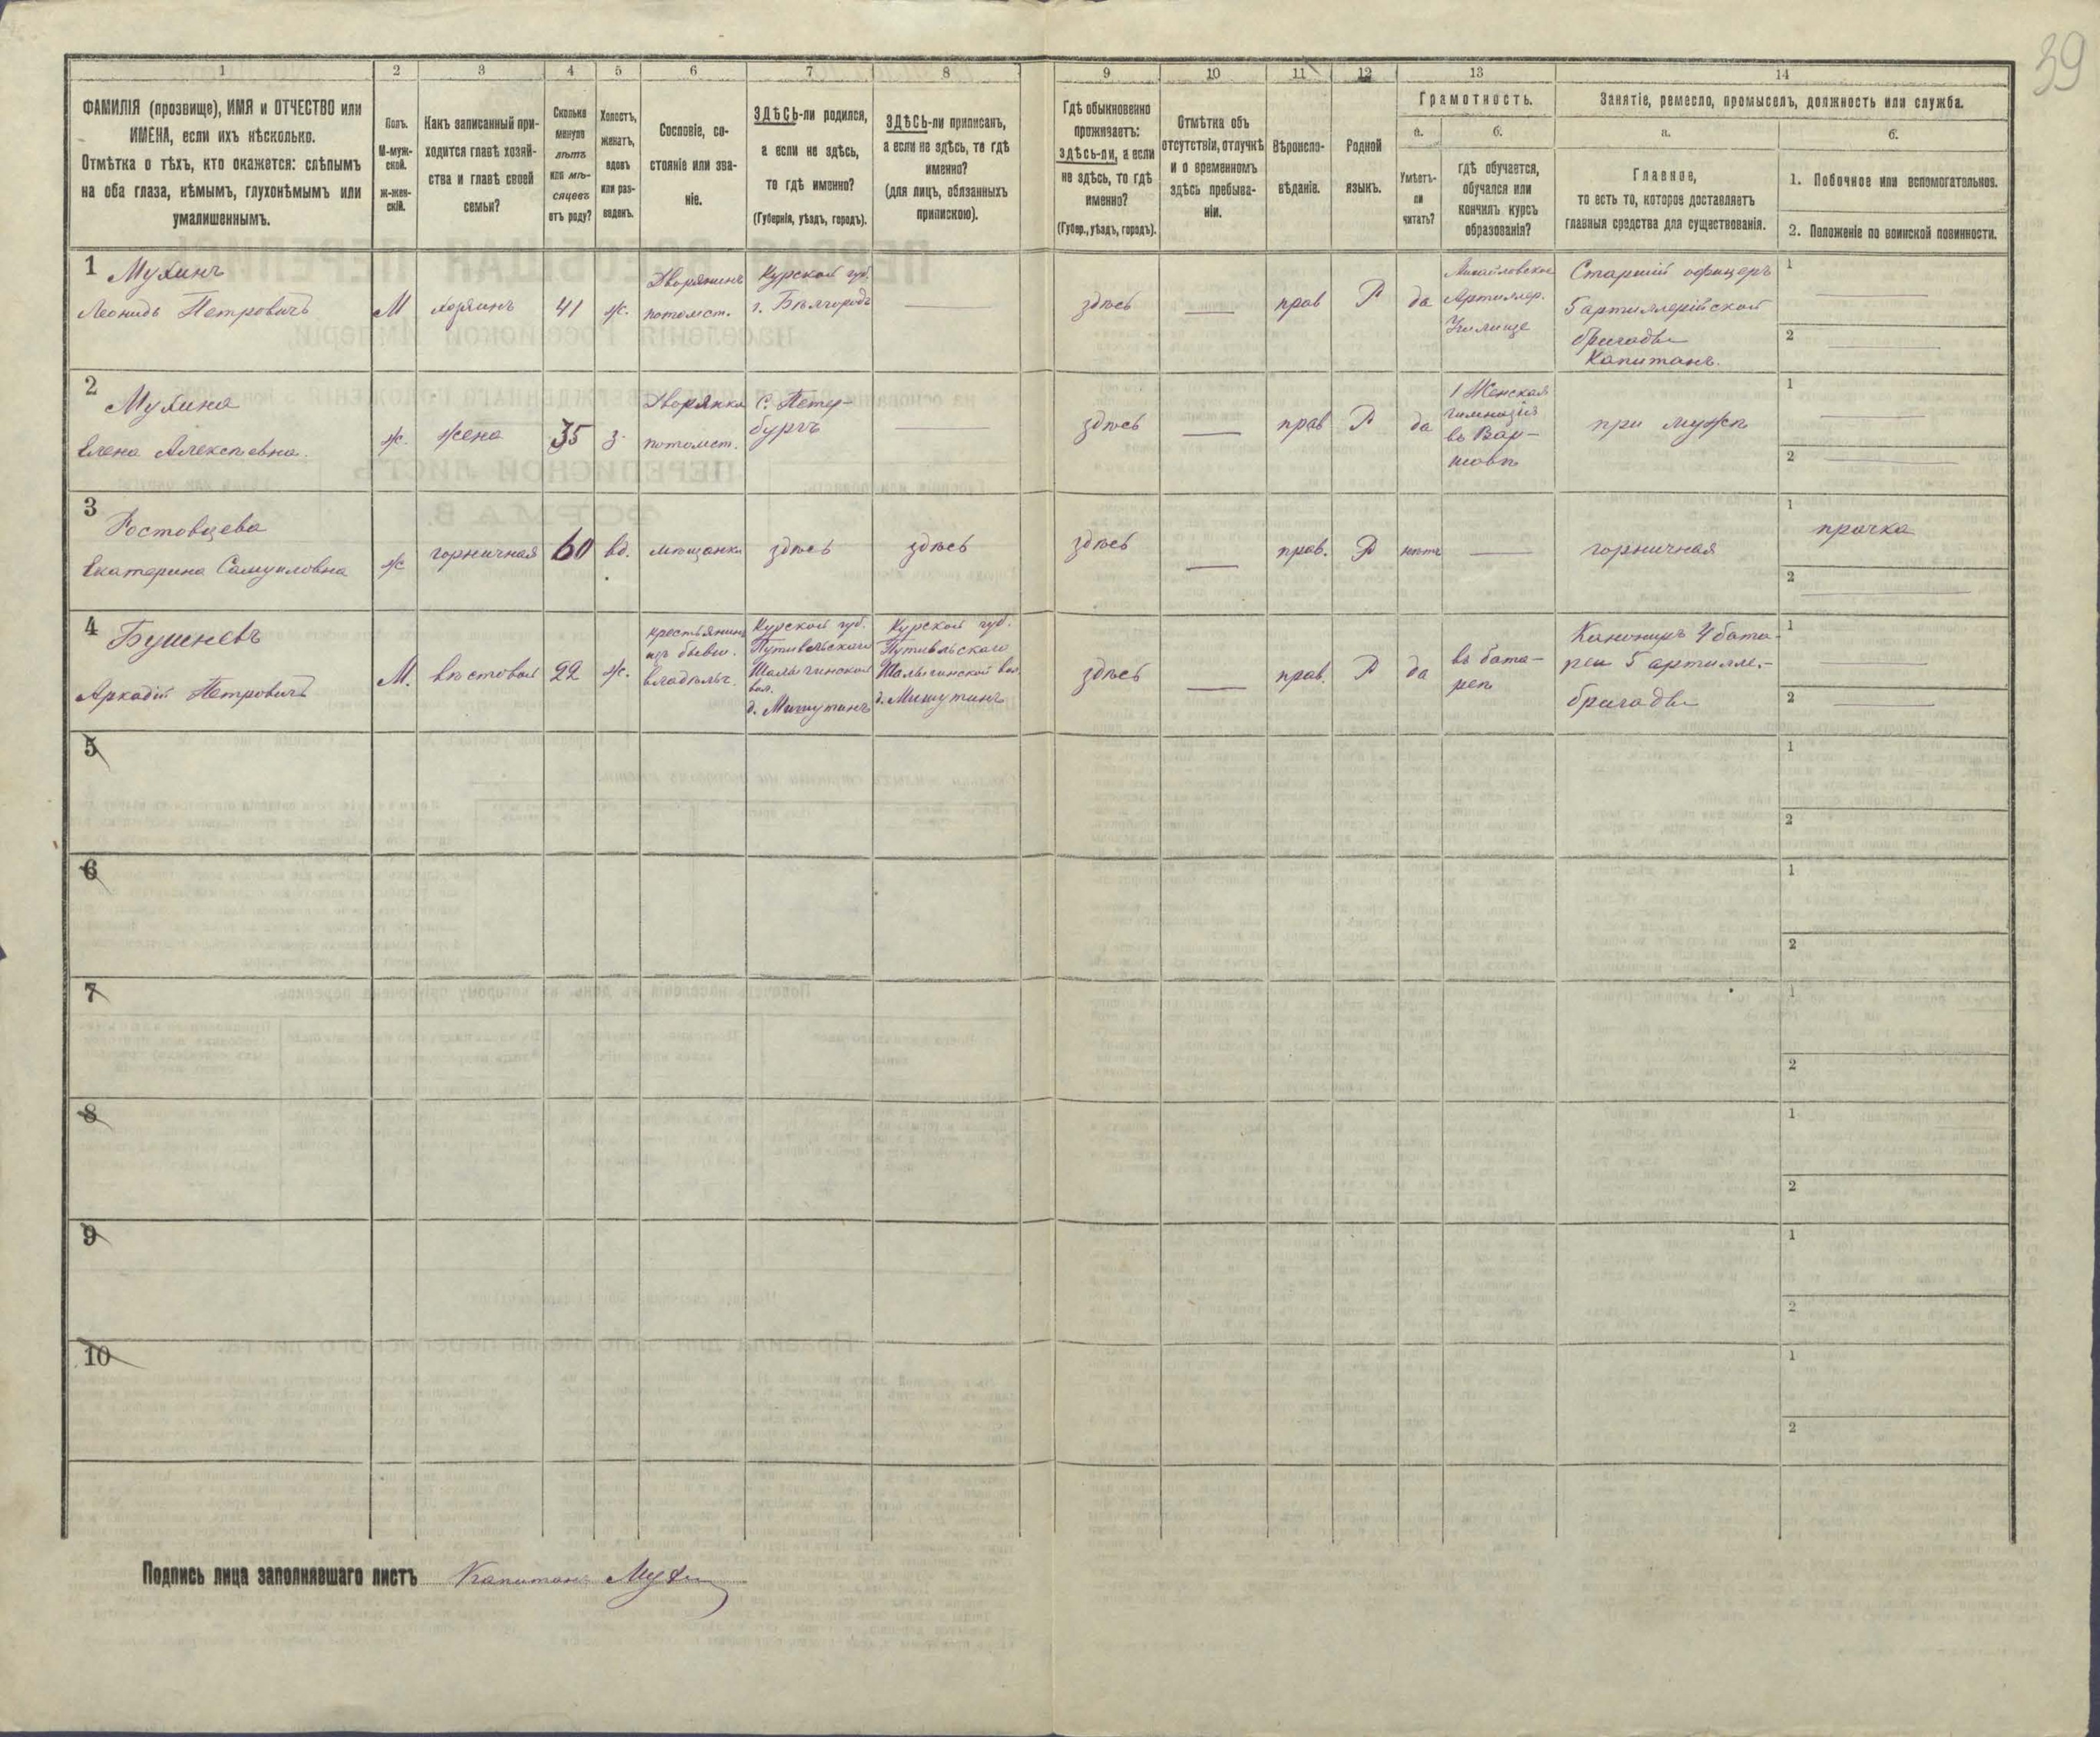 39
1 2 3 4 5 6 7 8 9 10 11 12 13 14
ФАМИЛІЯ (прозвище), ИМЯ и ОТЧЕСТВО или
ИМЕНА, если ихъ нѣсколько.
Отмѣтка о тѣхъ, кто окажется: слѣпымъ
на оба глаза, нѣмымъ, глухонѣмымъ или
умалишеннымъ.
Полъ.
М-муж-
ской.
ж-жен-
скій.
Какъ записанный при-
ходится главѣ хозяй-
ства и главѣ своей
семьи?
Сколько
минуло
лѣтъ
или мѣ-
сяцевъ
отъ роду?
Холостъ,
женатъ,
вдовъ
или раз-
веденъ.
Сословіе, со-
стояніе или зва-
ніе.
ЗДѢСЬ-ли родился,
а если не здѣсь,
то гдѣ именно?
(Губернія, уѣздъ, городъ).
ЗДѢСЬ-ли приписанъ,
а если не здѣсь, то гдѣ
именно?
(для лицъ, обязанныхъ
припискою).
Гдѣ обыкновенно
проживаетъ:
здѣсь-ли, а если
не здѣсь, то гдѣ
именно?
(Губер., уѣздъ, городъ).
Отмѣтка объ
отсутствіи, отлучкѣ
и о временномъ
здѣсь пребыва-
ніи.
Вѣроиспо-
вѣданіе.
Родной
языкъ.
Грамотность.
а.
Умѣетъ-
ли
читать?
б.
гдѣ обучается,
обучался или
кончилъ курсъ
образованія?
Занятіе, ремесло, промыселъ, должность или служба.
а.
Главное,
то есть то, которое доставляетъ
главныя средства для существованія.
б.
1. Побочное или вспомогательное.
2. Положеніе по воинской повинности.
1 Мухинъ
Леонидъ Петровичъ
М
хозяинъ
41
ж.
Дворянинъ
потомст.
Курской губ.
г. Бѣлгородъ
здѣсь
прав
Р
да
Михайловское
Артиллер.
Училище
Старшій офицеръ
5 артиллерійской
бригады
Капитанъ.
1
2
2 Мухина
Елена Алексѣевна.
ж.
жена
35
з.
Дворянка
потомст.
С. Петер-
бургъ
здѣсь
прав
Р
да
1 Женская
гимназія
въ Вар-
шавѣ
при мужѣ
1
2
3 Ростовцева
Екатерина Самуиловна
ж
горничная
60
вд.
мѣщанка
здѣсь
здѣсь
здѣсь
прав.
Р
нѣтъ
горничная
1 прачка
2
4 Бушневъ
Аркадій Петровичъ
М.
вѣстовой
22
ж.
крестьянинъ
изъ бывш.
владѣльч.
Курской губ.
Путивльскаго
Шалыгинской
вол.
д. Мишутинъ
Курской губ.
Путивльскаго
Шалыгинской вол.
д. Мишутинъ
здѣсь
прав.
Р
да
въ бата-
реѣ
Канониръ 4 бата-
реи 5 артилле.-
бригады
1
2
5
1
2
6
1
2
7
1
2
8
1
2
9
1
2
10
1
2
Подпись лица заполнявшаго листъ Капитанъ Мухинъ